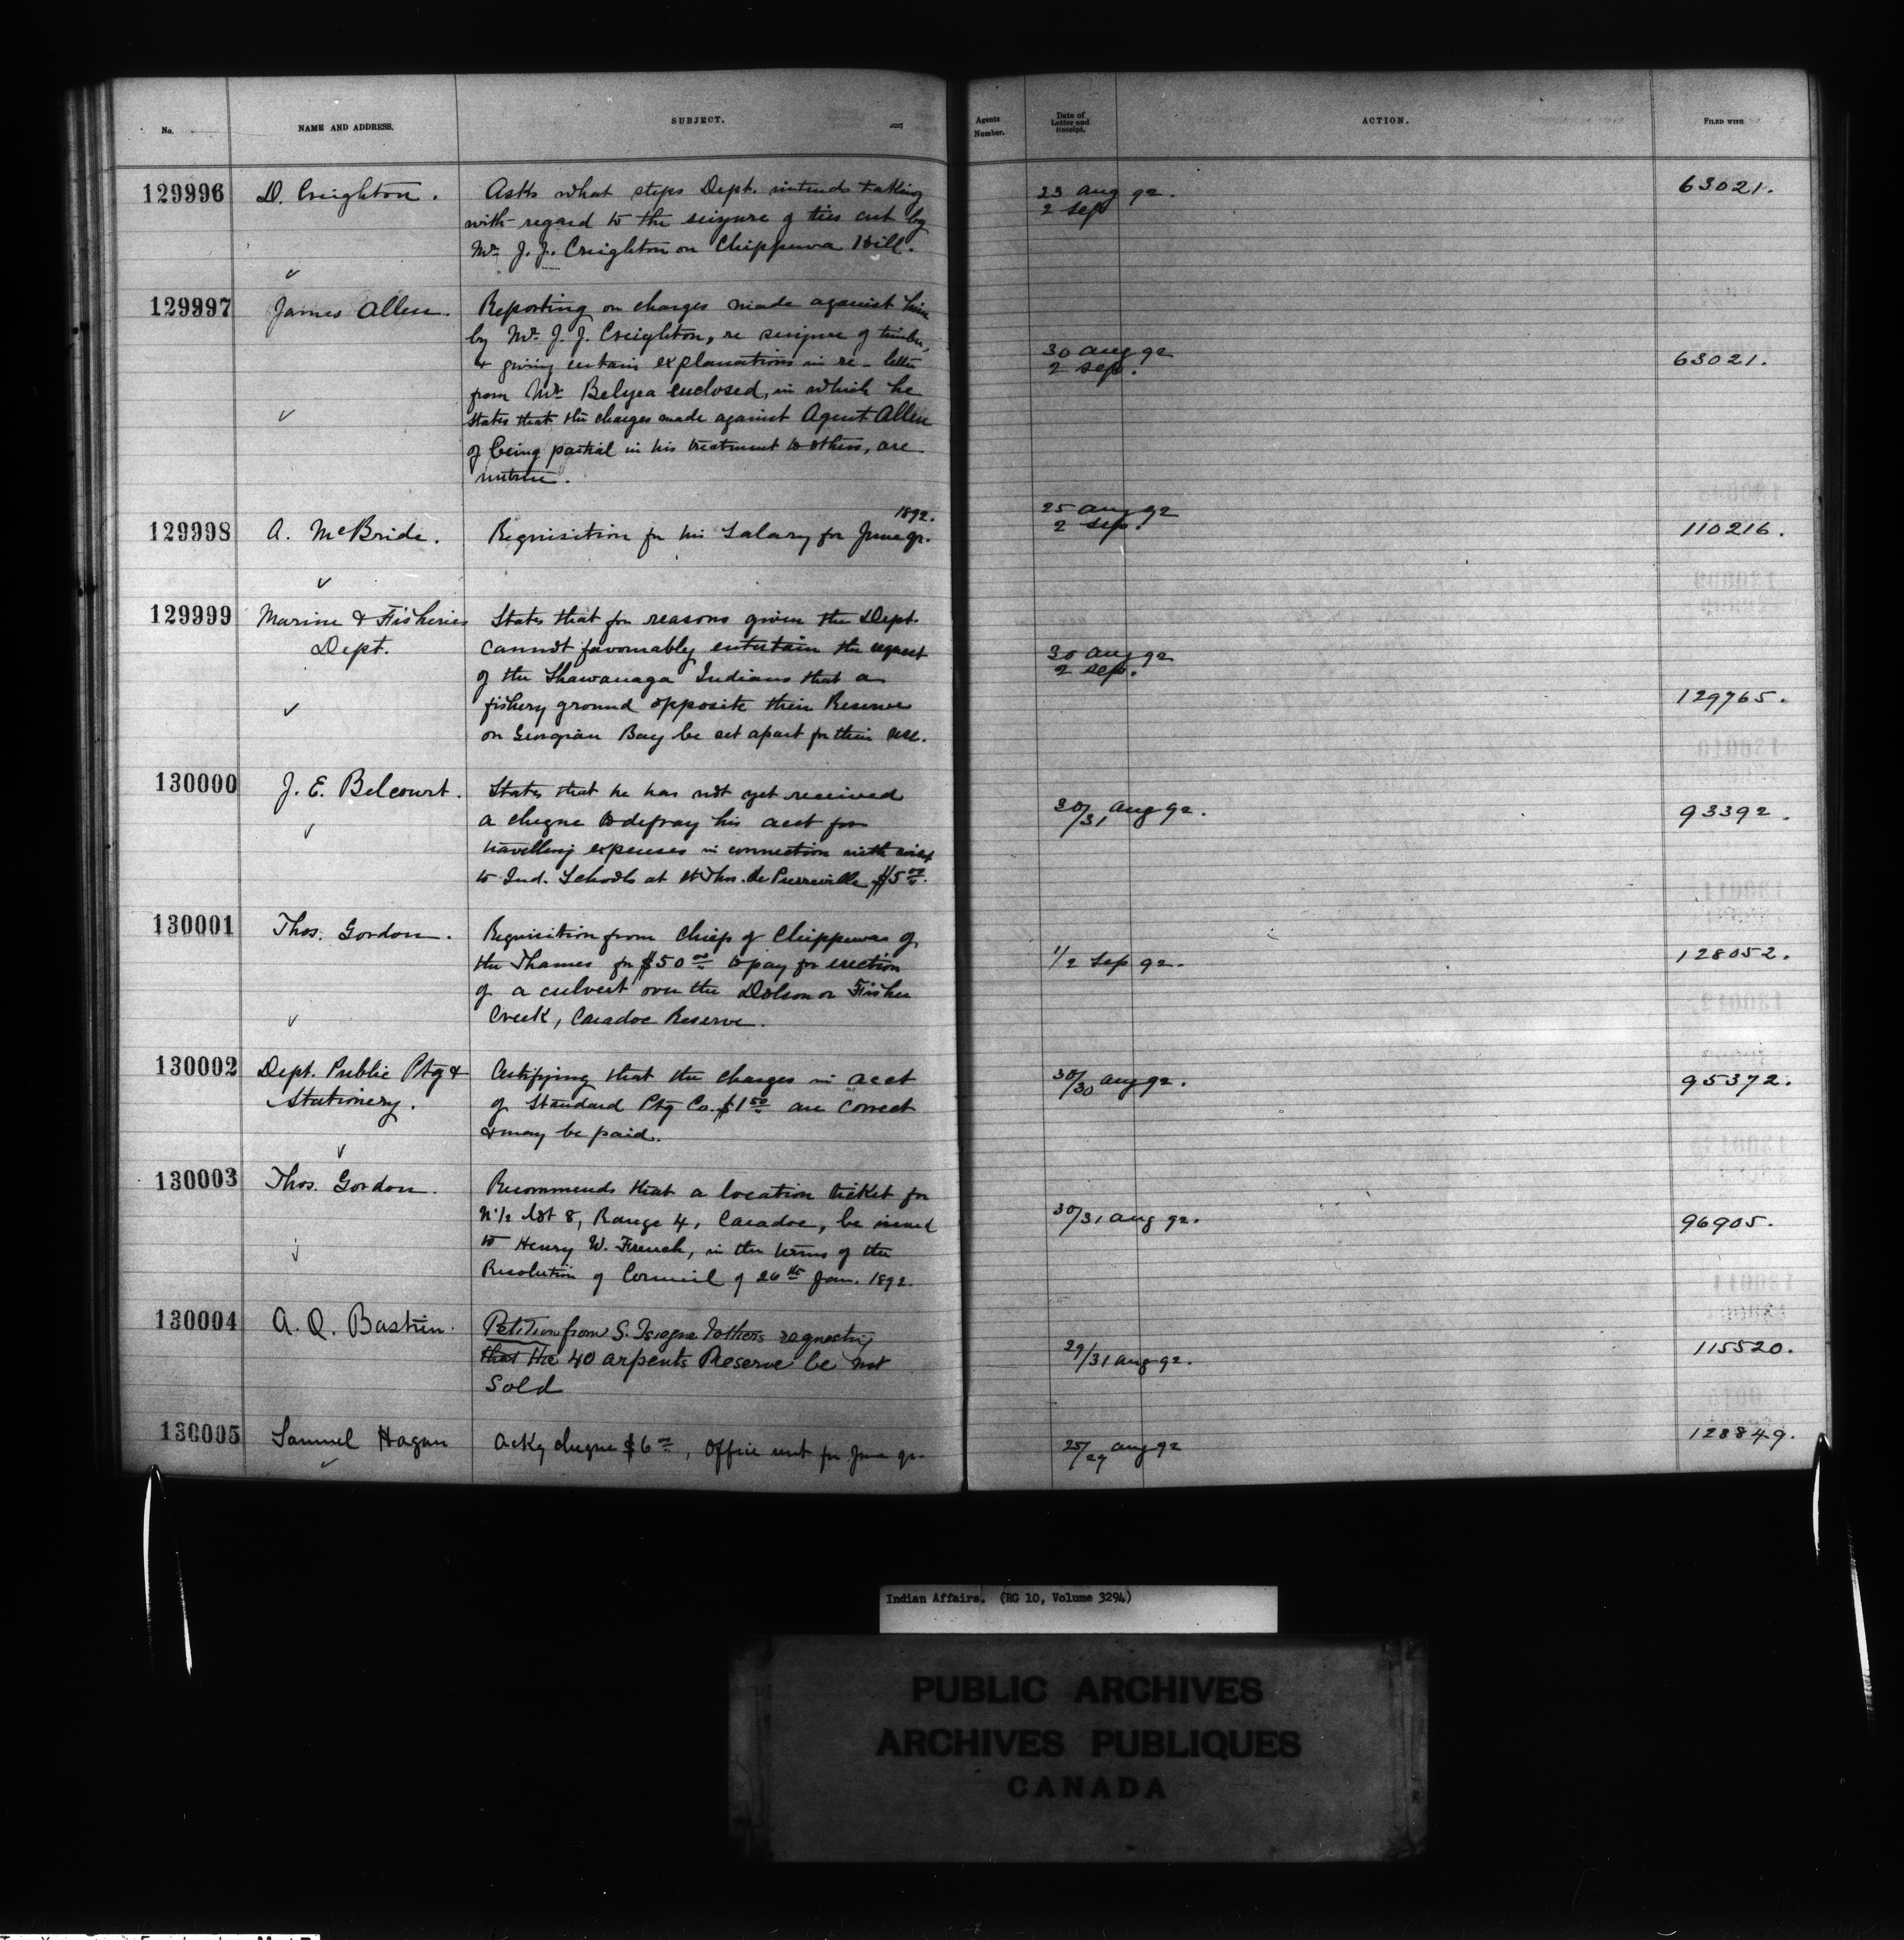 No.
NAME AND ADDRESS.
SUBJECT.
Agents Number.
Date of Letter and Receipt.
ACTION.
FILED WITH
129996
D. Creighton.
Asks what steps Dept. intends taking
with regard to the seizure of ties cut by
Mr. J. J. Creighton on Chippewa Hill.
23 Aug 92.
2 Sep
63021.
129997
James Allen.
Reporting on charges made against him
by Mr. J. J. Creighton, re seizure of timber,
& giving certain explanations in re - letter
from Mr. Belyea enclosed, in which he
states that the charges made against Agent Allen
of being partial in his treatment to others, are
untrue.
30 Aug 92
2 Sep.
63021.
129998
A. McBride.
1892.
Requisition for his Salary for June qr.
25 Aug 92
2 Sep.
110216.
129999
Marine & Fisheries
Dept.
States that for reasons given the Dept.
cannot favourably entertain the request
of the Shawanaga Indians that a
fishery ground opposite their Reserve
on Georgian Bay be set apart for their use.
30 Aug 92
2 Sep.
129765.
130000
J. E. Belcourt.
States that he has not yet received
a cheque to defray his acct for
travelling expenses in connection with visit
to Ind. Schools at St Thos. de Pierreville $5 00.
30/31 Aug 92.
93392.
130001
Thos. Gordon.
Requisition from Chiefs of Chippewas of
the Thames for $50 00 to pay for erection
of a culvert over the Dolson or Fisher
Creek, Caradoc Reserve.
1/2 Sep 92.
128052.
130002
Dept. Public Ptg &
Stationery.
Certifying that the charges in acct
of Standard Ptg Co. $1 50 are correct
& may be paid.
30/30 Aug 92.
95372.
130003
Thos. Gordon.
Recommends that a location ticket for
N 1/2 lot 8, Range 4, Caradoc, be issued
to Henry W. French, in the terms of the
Resolution of Council of 26th Jan. 1892.
30/31 Aug 92.
96905.
130004
A. O. Bastien.
Petition from S. & others requesting
that the 40 arpents Reserve be not
sold
29/31 Aug 92.
115520.
130005
Samuel Hagan
Ackg cheque $6 00, Office rent for June qr.
25/29 Aug 92
128849.
Indian Affairs. (RG 10, Volume 3294)
PUBLIC ARCHIVES
ARCHIVES PUBLIQUES
CANADA